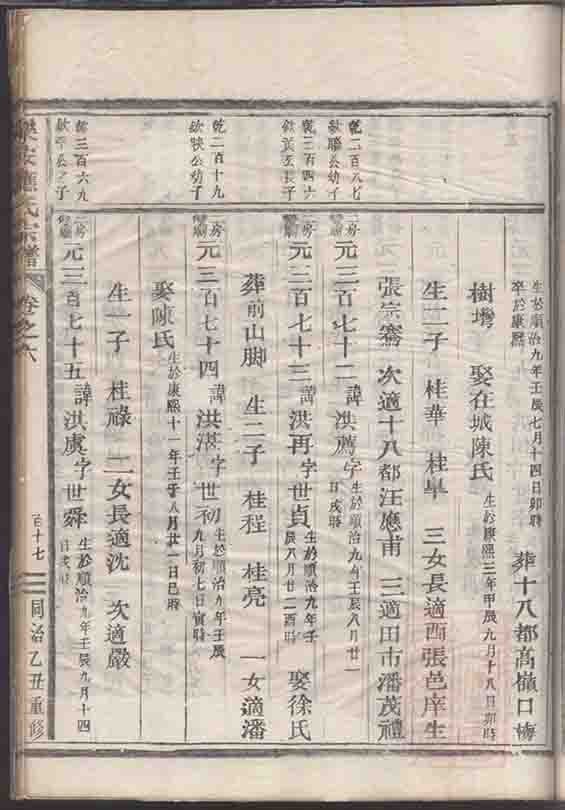 生於順治九年壬辰七月十四日卯時
卒於康熙
葬十八都高嶺口梅
樹灣 娶在城陳氏 生於康熙三年甲辰九月十八日卯時
生二子 桂華 桂早 三女長適西張邑庠生
張宗騫 次適十八都汪應甫 三適田市潘茂禮
乾二百八七
欽聯公幼子
二房
元三百七十二 諱洪薦字
生於順治九年壬辰八月廿一
日戌時
乾三百四六
長子
二房
元三百七十三 諱洪再字世貞
生於順治九年壬
辰八月廿二酉時
娶徐氏
葬前山脚 生二子 桂程 桂亮 一女適潘
乾二百十九
欽映公幼子
二房
元三百七十四 諱洪湛字世初
生於順治九年壬辰
九月初七日寅時
娶陳氏 生於康熙十一年壬子八月廿一日巳時
生一子 桂祿 二女長適沈 次適嚴
乾三百六九
欽平公之子
二房
元三百七十五 諱洪虞字世舜
生於順治九年壬辰九月十四
日戌時
樂安應氏宗譜
卷之六
百十七
同治乙丑重修